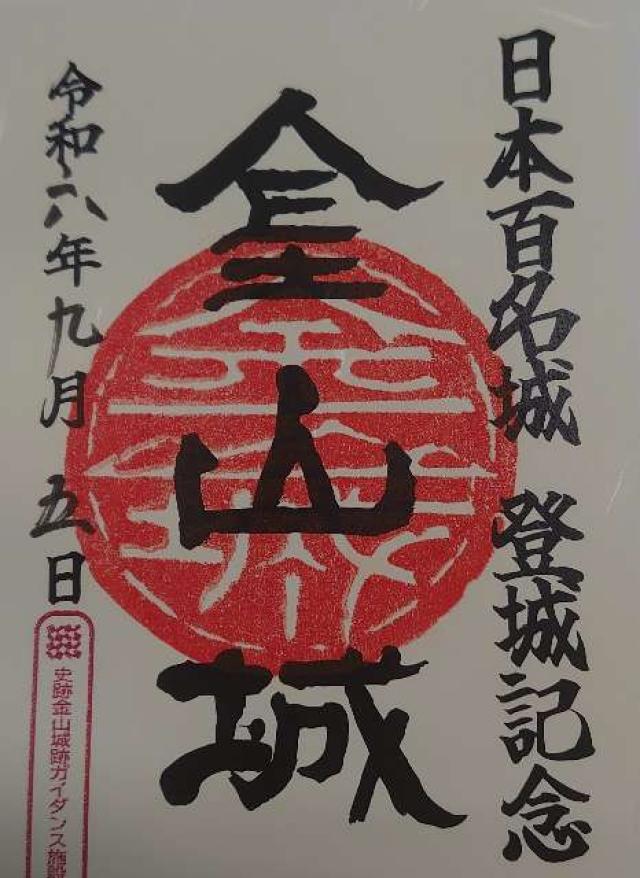 日本百名城 登城記念
金山城
令和六年九月 五日
史跡金山城跡ガイダンス施設